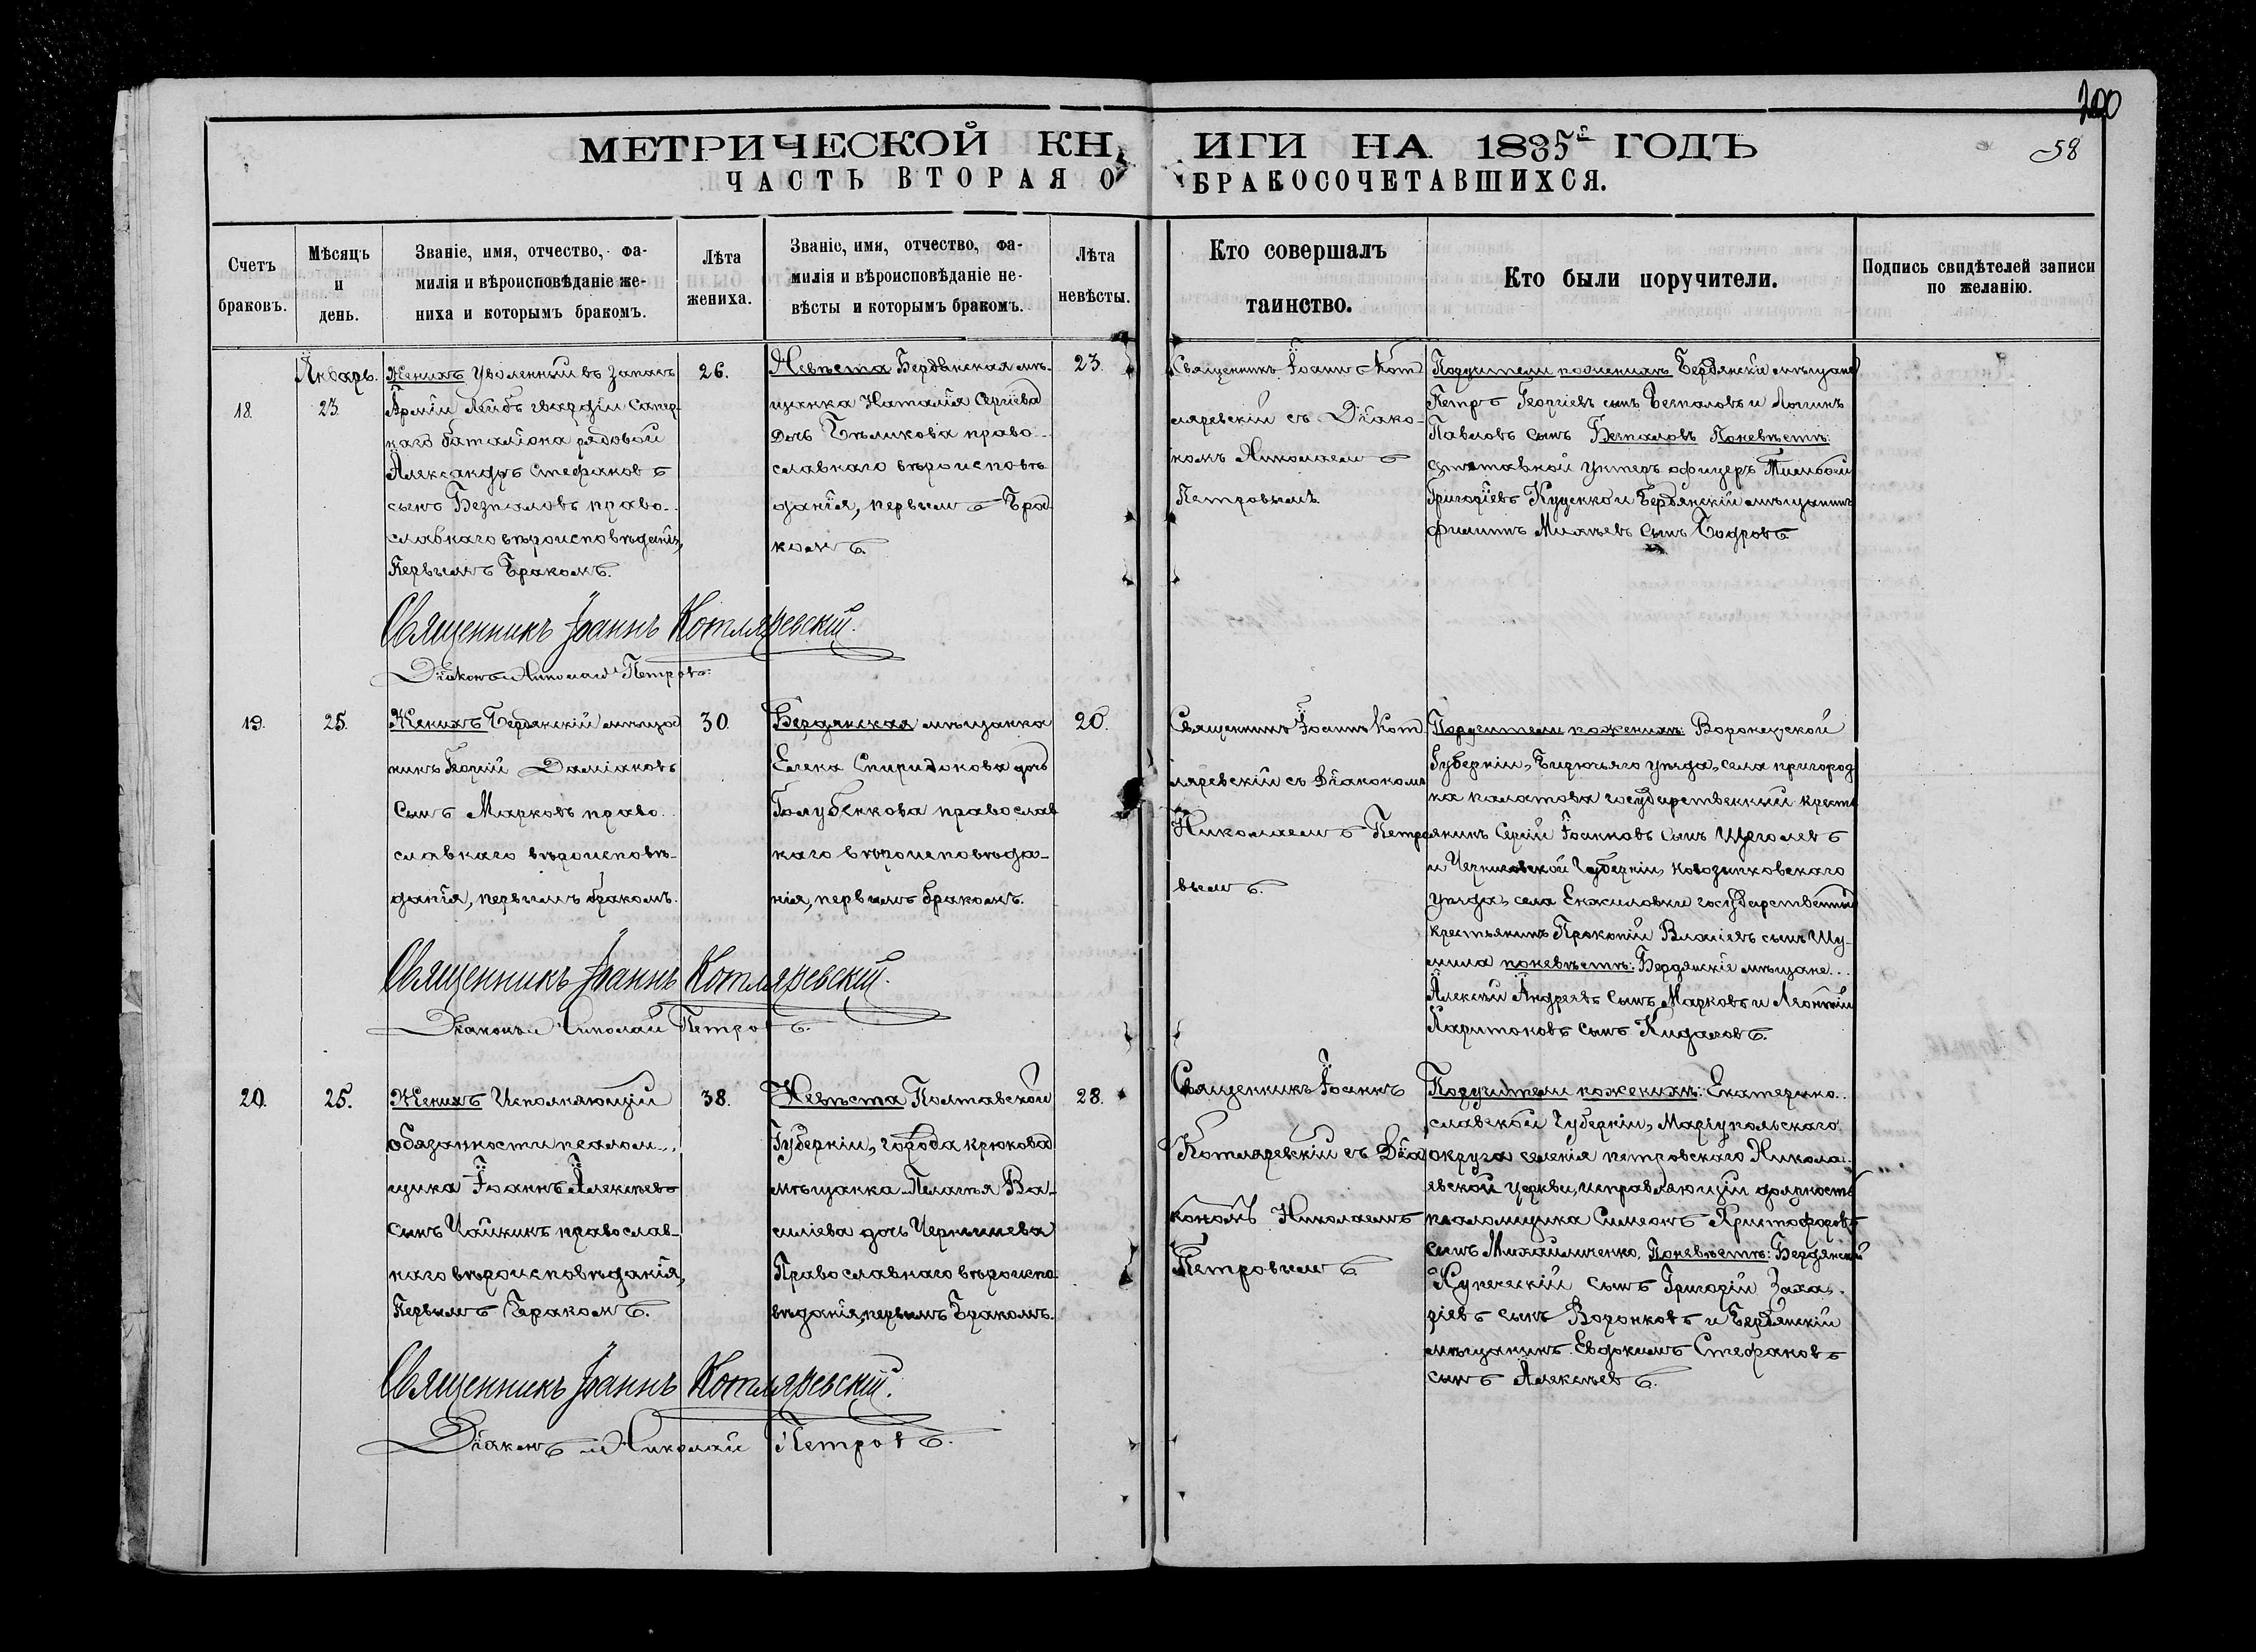 200
МЕТРИЧЕСКОЙ КН ИГИ НА 1885й ГОДЪ
58
ЧАСТЬ ВТОРАЯ О БРАКОСОЧЕТАВШИХСЯ.
Счетъ
браковъ.
Мѣсяцъ
и
день.
Званіе, имя, отчество, фа-
милія и вѣроисповѣданіе же-
ниха и которымъ бракомъ.
Лѣта
жениха.
Званіе, имя, отчество, фа-
милія и вѣроисповѣданіе не-
вѣсты и которымъ бракомъ.
Лѣта
невѣсты.
Кто совершалъ
таинство.
Кто были поручители.
Подпись свидѣтелей записи
по желанію.
18.
Январь.
23.
Женихъ Уволенный въ запасъ
Арміи Лейбъ гвардіи Сапер-
наго баталіона рядовой
Александръ Стефановъ
сынъ Безпаловъ право-
славнаго вѣроисповѣданія,
Первымъ Бракомъ.
26.
Невѣста Бердянская мѣ-
щанка Наталія Сергіева
Дочь Бѣликова право-
славнаго вѣроисповѣ
данія, первымъ Бра-
комъ.
23.
Священникъ Іоаннъ Кот
ляревскій съ Діако-
номъ Николаемъ
Петровымъ.
Поручители поженихѣ Бердянскіе мѣщане
Петръ Георгіевъ сынъ Безпаловъ и Логинъ
Павловъ сынъ Безпаловъ Поневѣстѣ:
отставной унтеръ офицеръ
Григоріевъ Куценко и Бердянскій мѣщанинъ
Филиппъ сынъ Бодровъ
Священникъ Іоаннъ Котляревскій.
Діаконъ Николай Петровъ.
19.
25.
Женихъ Бердянскій мѣща
нинъ Георгій Даміановъ
Сынъ Марковъ право-
славнаго вѣроисповѣ-
данія, первымъ бракомъ.
30.
Бердянская мѣщанка
Елена Спиридонова дочь
Голубенкова православ
наго вѣроисповѣда-
нія, первымъ бракомъ.
20.
Священникъ Іоаннъ Кот
ляревскій съ Діакономъ
Николаемъ Петро
вымъ.
Поручители поженихѣ: Воронежской
Губерніи, Бирючьяго уѣзда, села пригород
ка палатова государственный кресть
янинъ Сергій Іоанновъ Сынъ Щеголевъ
и Черниговской Губерніи, Новозыпковскаго
уѣзда, села государственный
крестьянинъ Прокопій Власіевъ сынъ Шу-
мила поневѣстѣ: Бердянскіе мѣщане..
Алексѣй Андреевъ Сынъ Марковъ и Леонтій
Харитоновъ сынъ Кидаловъ.
Священникъ Іоаннъ Котляревскій.
Діаконъ Николай Петровъ.
20.
25.
Женихъ Исполняющій
обязанности псалом..
щика Іоаннъ Алексѣевъ
Сынъ Чайкинъ православ-
наго вѣроисповѣданія,
Первымъ Бракомъ.
38.
Невѣста Полтавской
Губерніи, города крюкова
мѣщанка Пелагья Ва-
силіева дочь Чернышева
Православнаго вѣроиспо-
вѣданія, первымъ Бракомъ.
28.
Священникъ Іоаннъ
Котляревскій съ Діа
кономъ Николаемъ
Петровымъ
Поручители поженихѣ: Екатерино..
славской Губерніи, Маріупольскаго
округа селенія петровскаго Никола-
евской церкви, исправляющій должность
псаломщика Симеонъ Христофоровъ
сынъ Михайличенко, Поневѣстѣ: Бердянскій
Купеческій Сынъ Григорій Заха-
ріевъ сынъ Воронковъ и Бердянскій
мѣщанинъ Евдокимъ Стефановъ
сынъ Алексѣевъ.
Священникъ Іоаннъ Котляревскій.
Діаконъ Николай Петровъ.